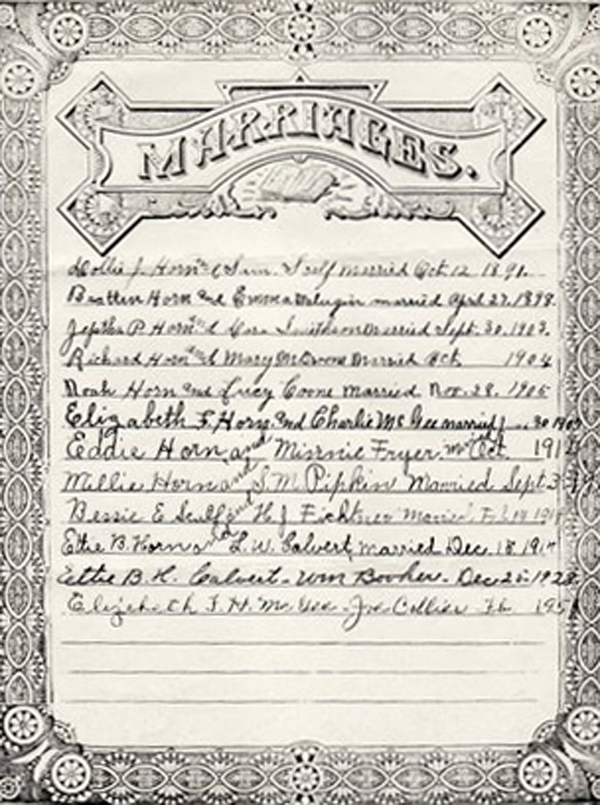 MARRIAGES.
Dollie J. Horn and Sam. Sculf married Oct 12, 1891.
Horn and Emma married April 27. 1898.
Jeptha P. Horn and Cora Smithson Married Sept. 30, 1903.
Richard Horn and Mary McCroone Married Oct 1904
Noah Horn and Lucy Coone married Nov. 28, 1905
Elizabeth F. Horn and Charlie McGee married 30
Eddie Horn and Minnie Fryer Oct.
Millie Horn and S. M. Pipkin Married Sept 3
Bessie E Sculf and H. J. Fichtner Married Feb 19
Ettie B. Horn and L. W. Calvert, married Dec. 18
Ettie B. H. Calvert - Wm Booher - Dec 25 -
Elizabeth F. H. McGee - Joe Collier Feb.